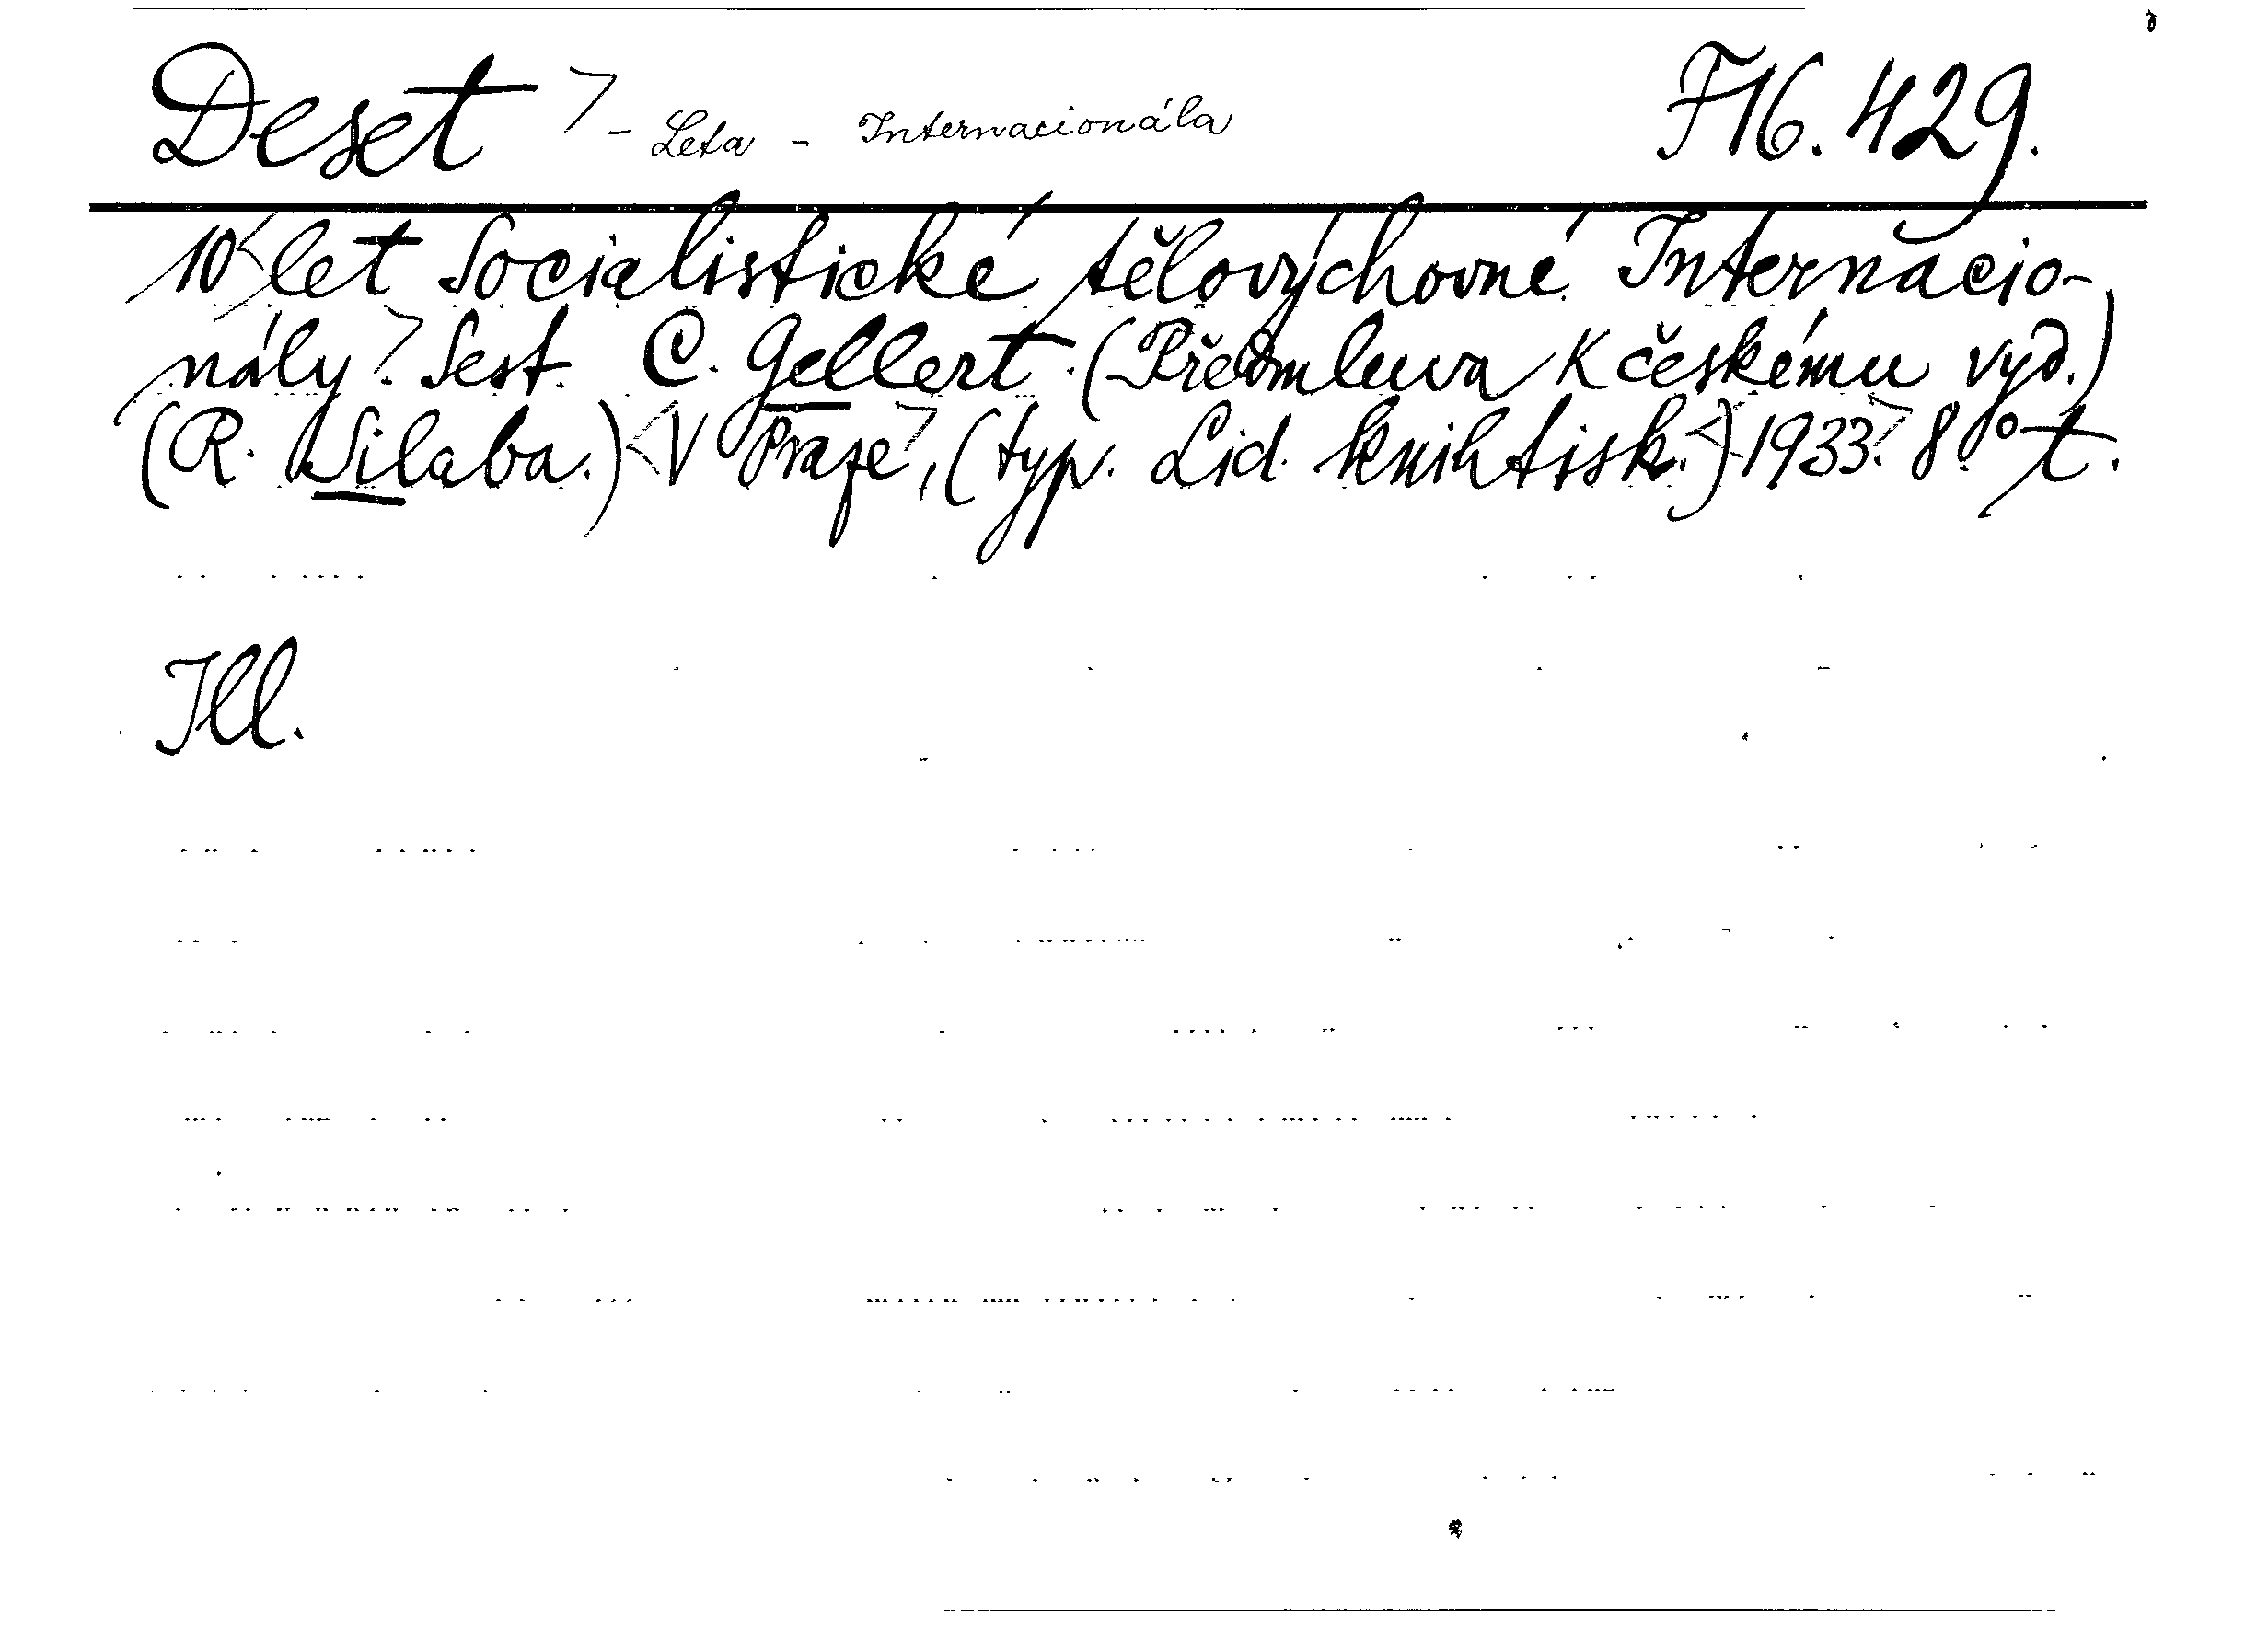 Deset - Leta - Internacionála F 16.429.
10 let Socialistické tělovýchovné Internacio-
nály. Sest. C. Gellert. (Předmluva k českému vyd.)
(R. Silaba.) V Praze, (typ. Lid. knihtisk.) 1933. 8° t.
Ill.